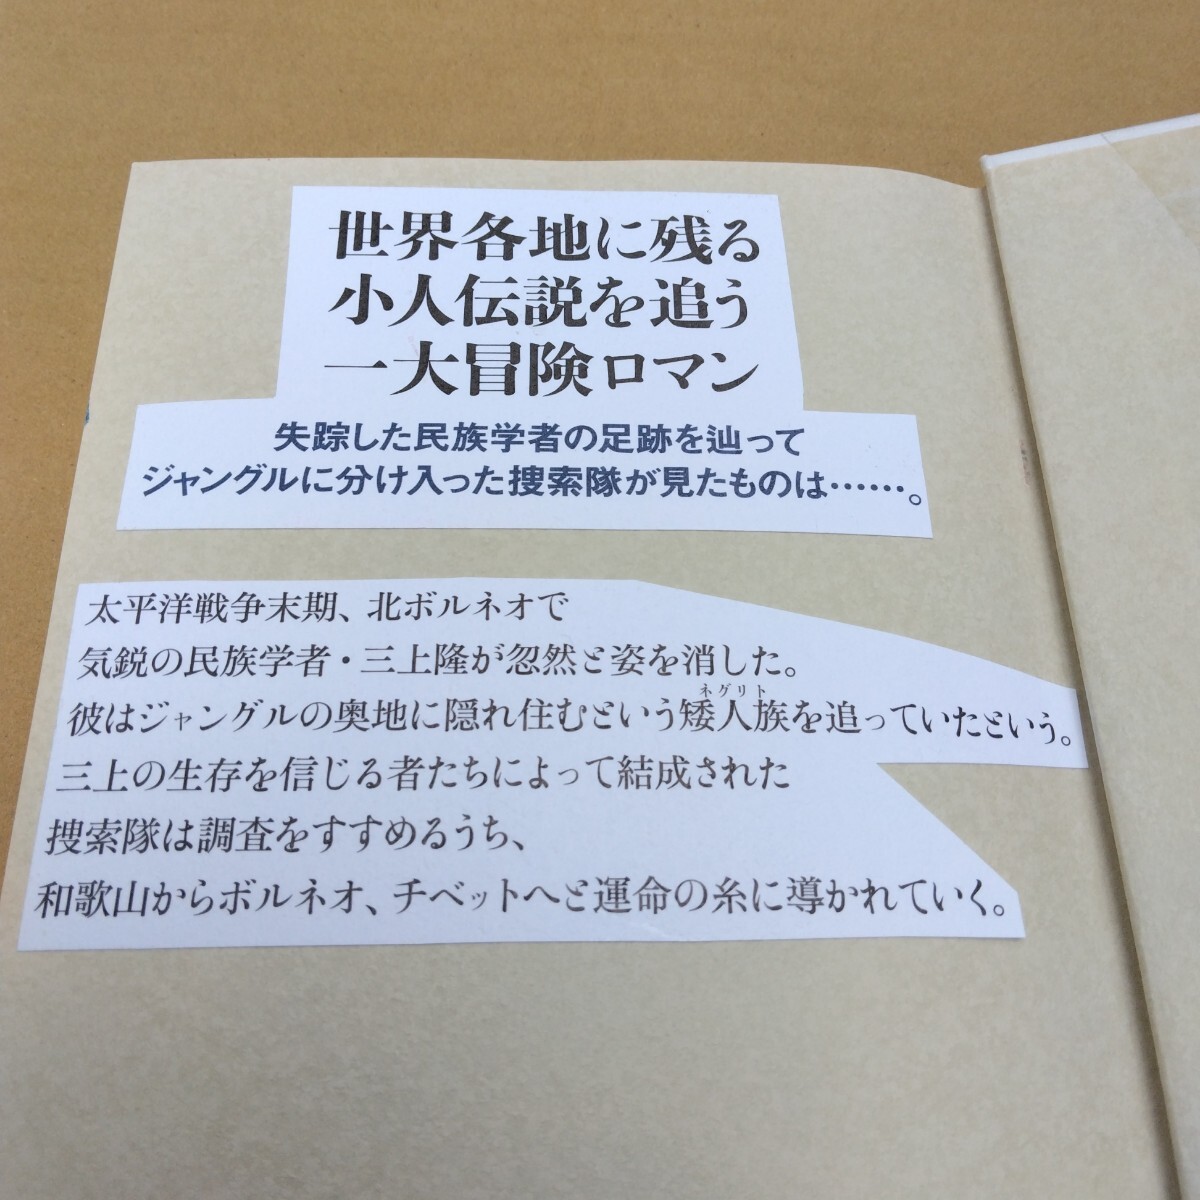 世界各地に残る
小人伝説を追う
一大冒険ロマン
失踪した民族学者の足跡を辿って
ジャングルに分け入った捜索隊が見たものは……。
太平洋戦争末期、北ボルネオで
気鋭の民族学者・三上隆が忽然と姿を消した。
ネグリト
彼はジャングルの奥地に隠れ住むという矮人族を追っていたという。
三上の生存を信じる者たちによって結成された
捜索隊は調査をすすめるうち、
和歌山からボルネオ、チベットへと運命の糸に導かれていく。